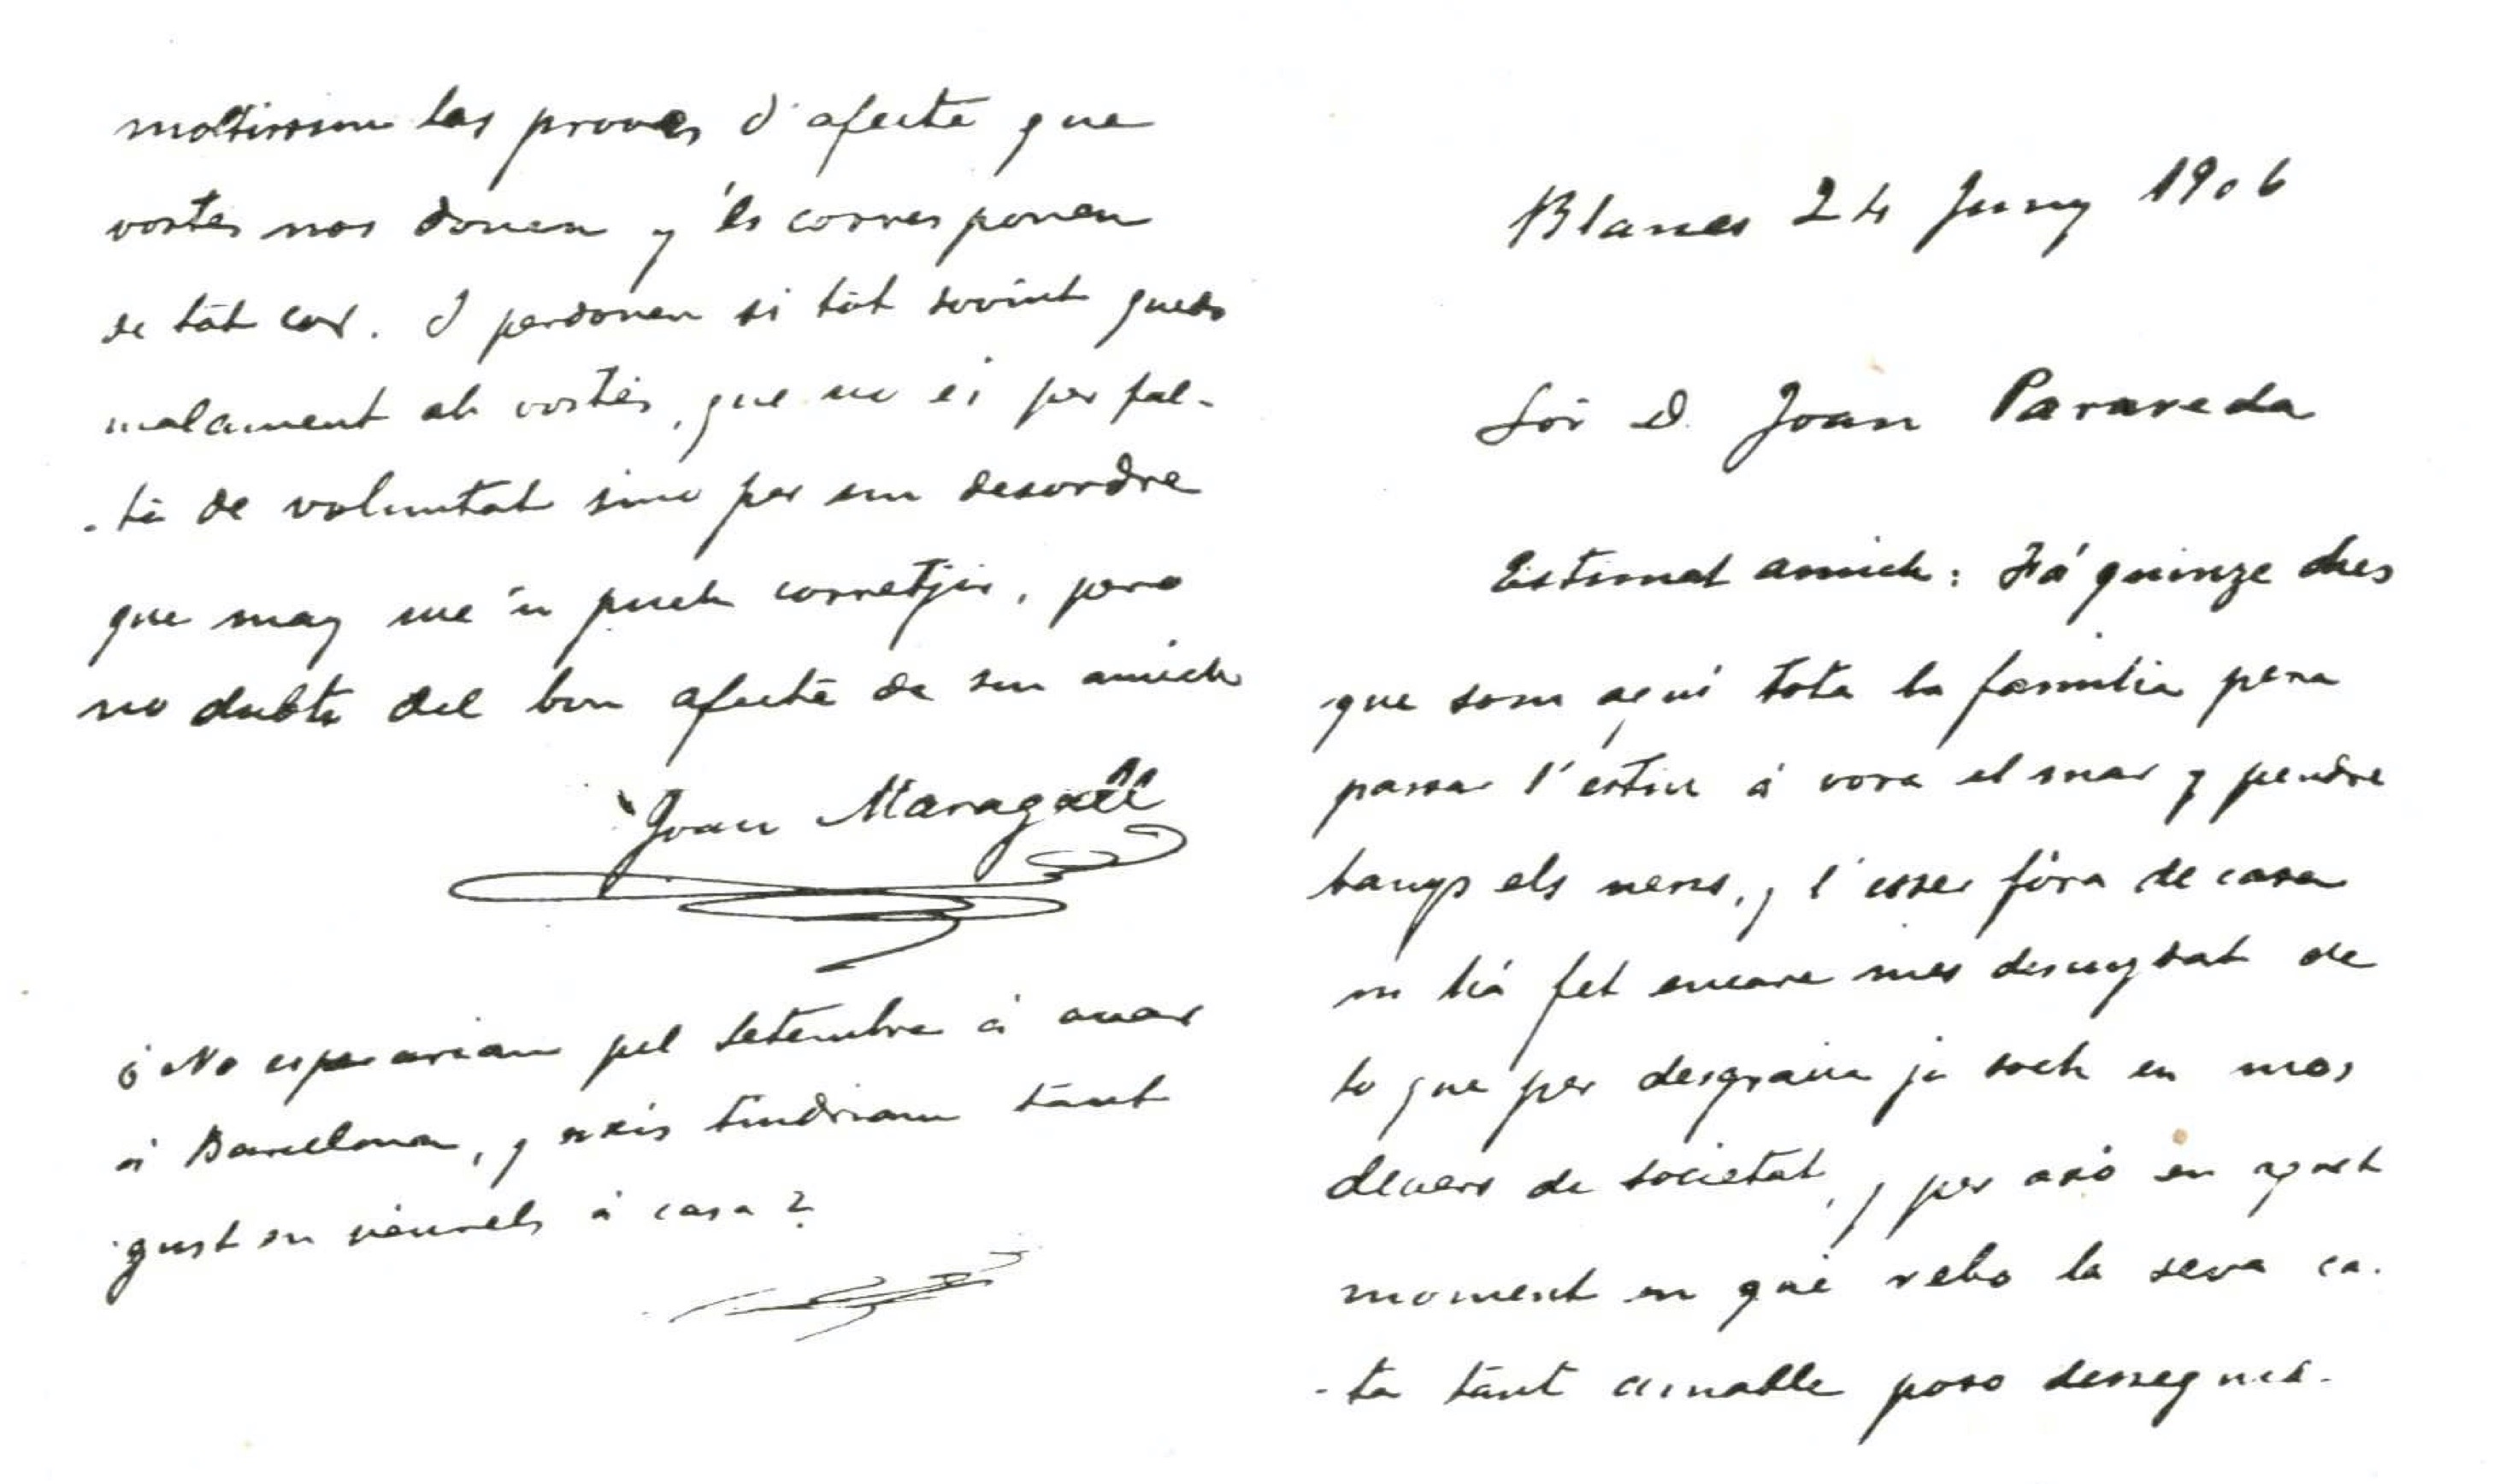 Blanes 24 Juny 1906
Sor D. Joan Parareda
Estimat amich: Há quinze dies
que som aquí tota la familia pera
passar l'estiu á vora el mar y pendre
banys els nens, y l'esser fóra de casa
m há fet encare mes descuydat de
lo que per desgracia ja soch en mos
devers de societat, y per axó en aquet
moment en qué rebo la seva ca-
-ta tánt amable poso desseguid-
moltissim las proves d'afecte que
vostés nos donen y 'ls corresponen
de tót cor. I perdonen si tót sovint quedo
malament ab vostés, que no és per fal-
-ta de voluntat sino per un desordre
que may me'n puch corretjir, pero
no dubte del bon afecte de son amich
Joan Maragall
¿No esperarian pel Setembre á anar
á Barcelona, y axís tindriam tánt
gust en véurels á casa?